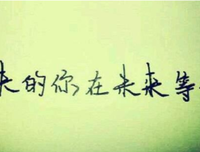 来的你在未来等